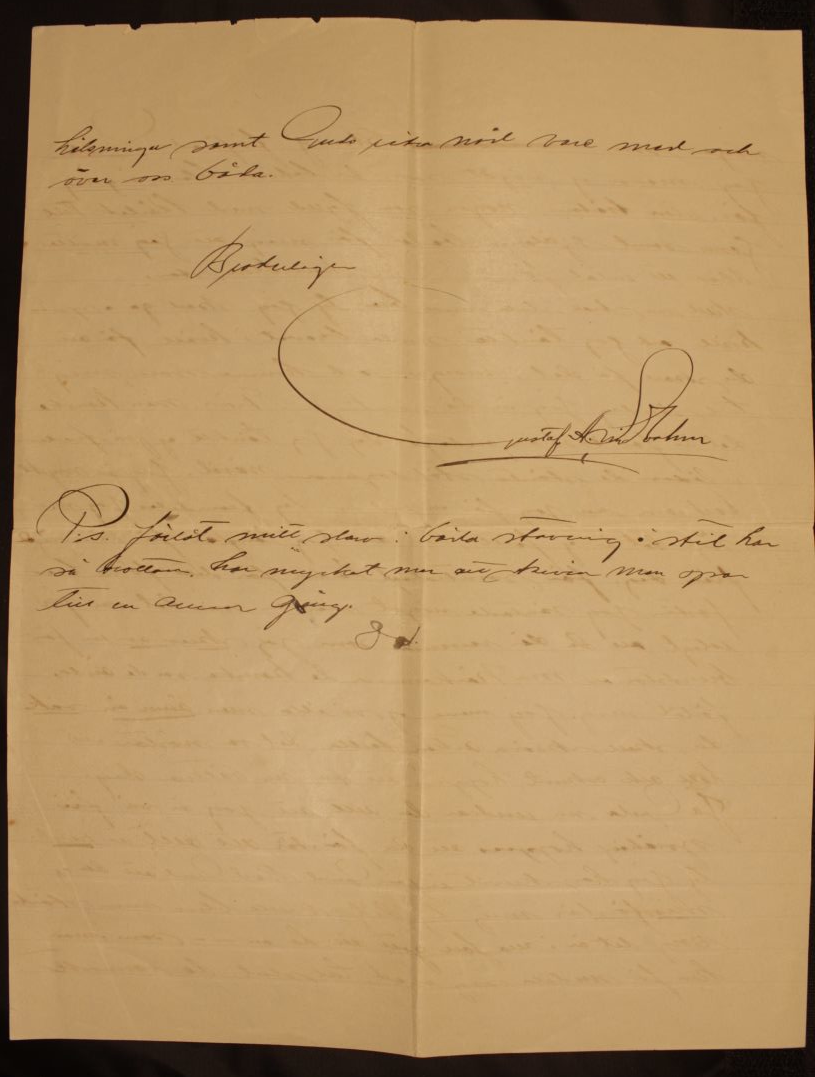 hälsningar samt Guds rika nåd vare med och
över oss båda.
Broderligen
Gustaf
P.s. förlåt mitt slarv i båda stavning o stil har
så bråttom, har mycket mer att skriva men spar
till en annan gång.